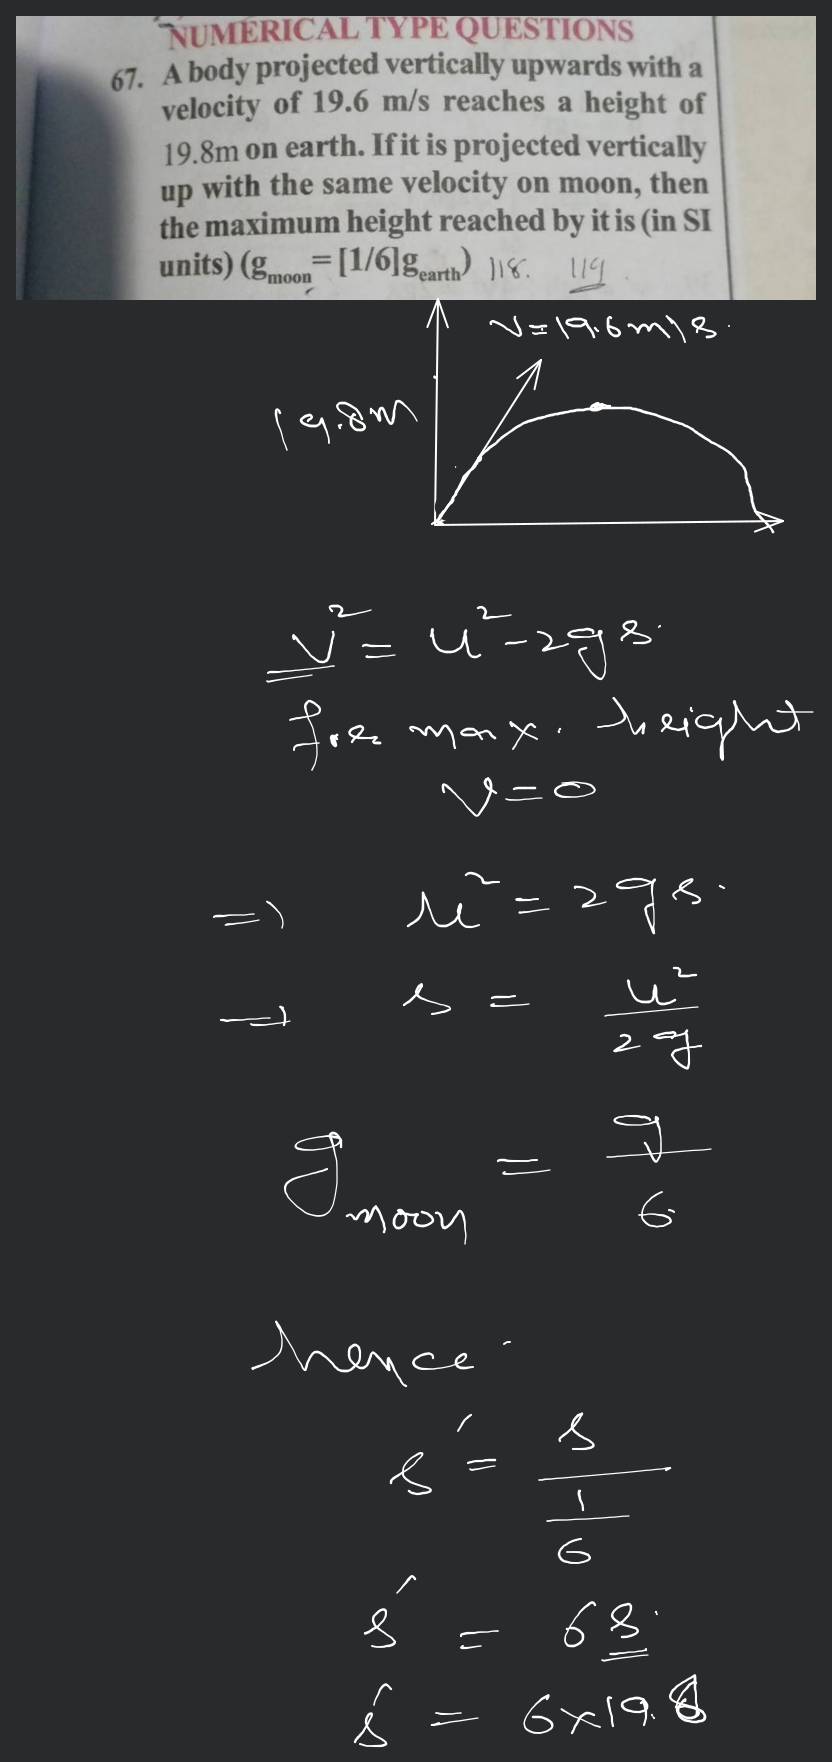 NUMERICAL TYPE QUESTIONS
67. A body projected vertically upwards with a
velocity of 19.6 m/s reaches a height of
19.8m on earth. If it is projected vertically
up with the same velocity on moon, then
the maximum height reached by it is (in SI
units) (g moon = [1/6]g earth) 118. 119.
v=19.6m/s.
19.8m
v² = u² - 2gs.
for max. height
v=0
=> u² = 2gs.
=> s = u²/2g
g moon = g/6
hence
s' = s/(1/6)
s' = 6s.
s' = 6x19.8